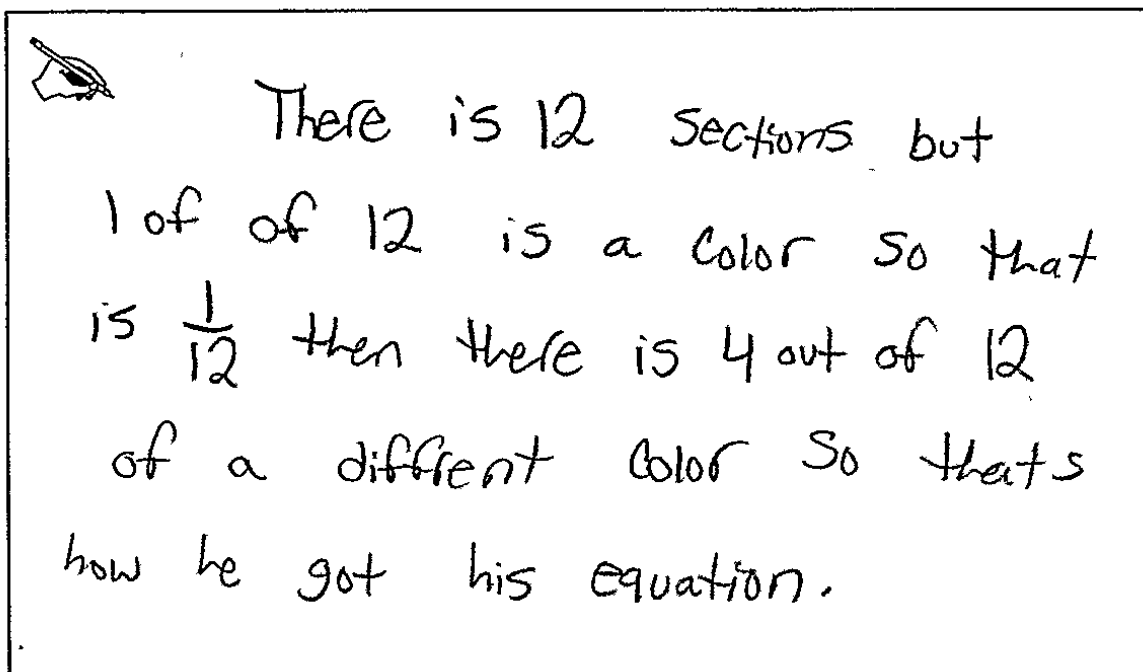 There is 12 sections but
1 of of 12 is a color so that
is 1/12 then there is 4 out of 12
of a diffrent color So thats
how he got his equation.